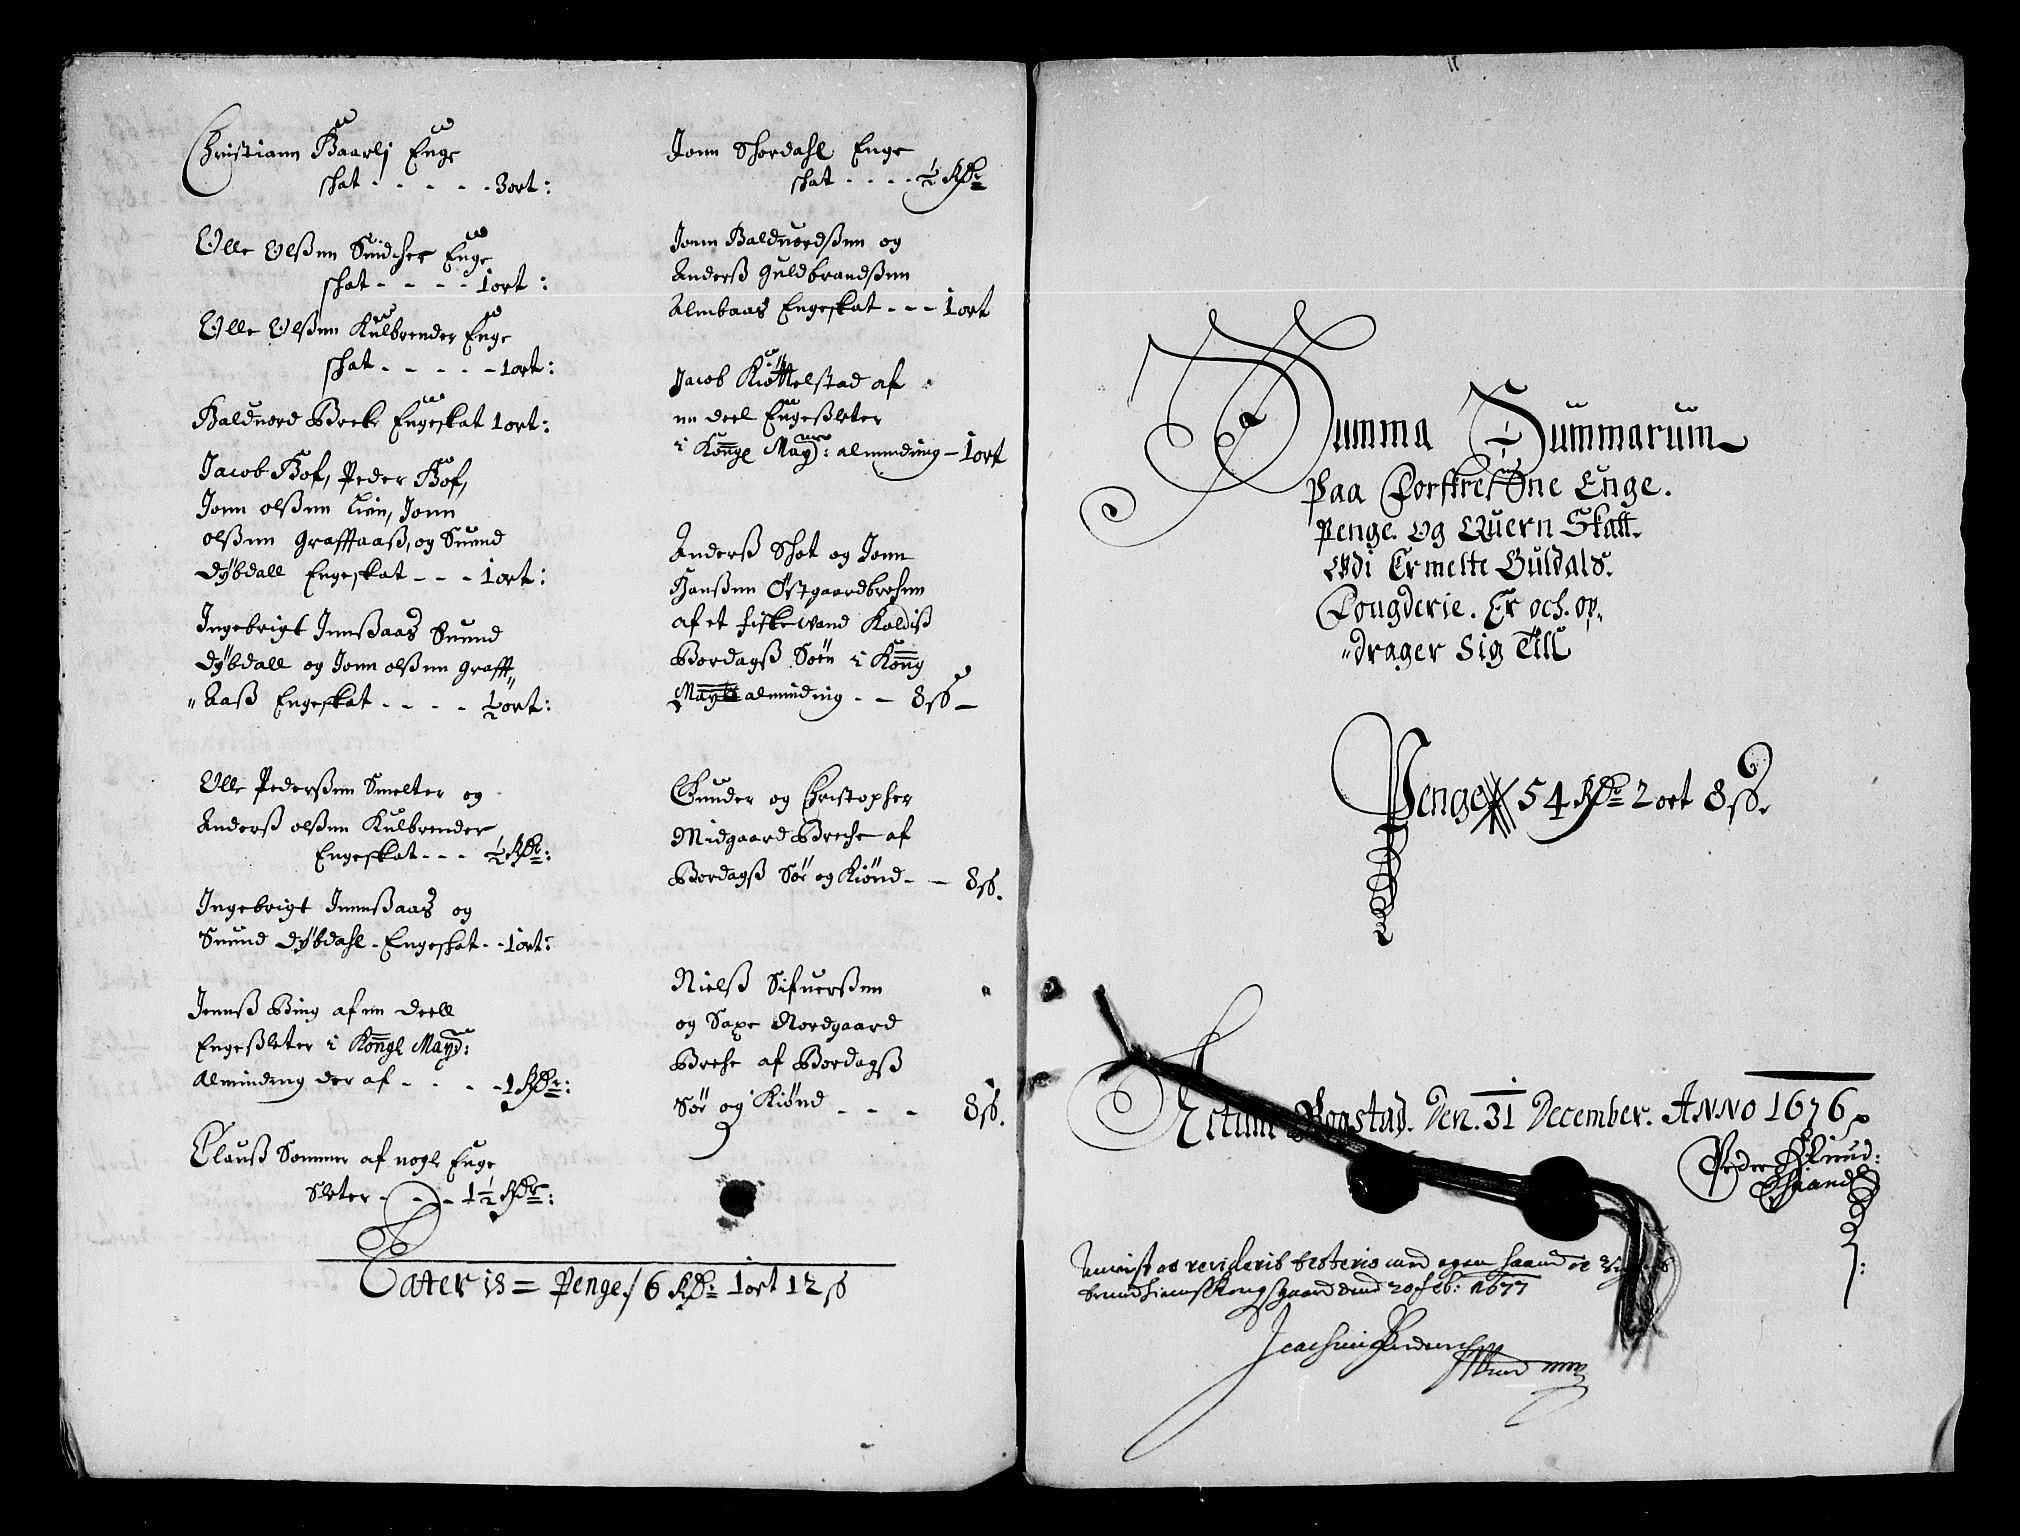 Christiann Baarlj Enge
skat - - - - - 3ort:
Olle Olßøn Suidcher Enge
skat - - - - 1ort:
Olle Olßøn Kulbrender Enge
skat - - - - - 1ort:
Balduord Breke Engeskat 1ort:
Jacob Hof, Peder Hof,
Jonn olßøn Lien, Jonn
olßøn Graffaaß, og Suend
Dÿbdall Engeskat - - - 1ort:
Ingebrigt Jenßaas Suend
Dÿbdall og Jonn olßøn Graff„
„Aaß Engeskat - - - - ½ort:
Olle Pederßøn Smelter og
Anderß olßøn Kulbrender
Engeskat - - - ½ Rdr:
Ingebrigt Jennßaas og
Suend Dÿbdahl - Engeskat - - 1ort:
Jennß Bing af en deell
Engeßleter i Kongl Mayd:
Alminding der af - - - - 1 Rdr:
Clauß Sommer af nogle Enge
Sleter - - - 1½ Rdr:
Jonn Skordahl Enge
skat - - - - ½ Rdr
Jonn Balduordßøn og
Anderß Guldbrandßøn
Almbaas Engeskat - - - 1ort
Jacob Kiøttelstad af
en deel Engeßleter
i Kongl May: alminding - 1ort
Anderß Skot og Jonn
Hanßøn Østgaardbrehen
af et fiske Vand Kaldiß
Bordagß Søen i Kong
May alminding - - 8 ß -
Gunder og Christopher
Midgaard Brehe af
Bordagß Sør og Kiønd - - 8 ß.
Nielß Sifuerßøn
og Saxe Nordgaard
Brehe af Bordagß
Sør og Kiønd - - - 8 ß.
Latter is = Penge / 6 Rdr 1ort 12 ß
Summa Summarum
Paa Forskrefne Enge.
Penge. og Quern Skatt.
Udi Ermelte Guldals.
Fougderie. Er och. op„
„drager Sig Till
Penge 54 Rdr 2ort 8 ß.
Actum Bogstad. Den. 31 December. ANNO 1676
Peder
revideris med egen haand
20 feb: 1677